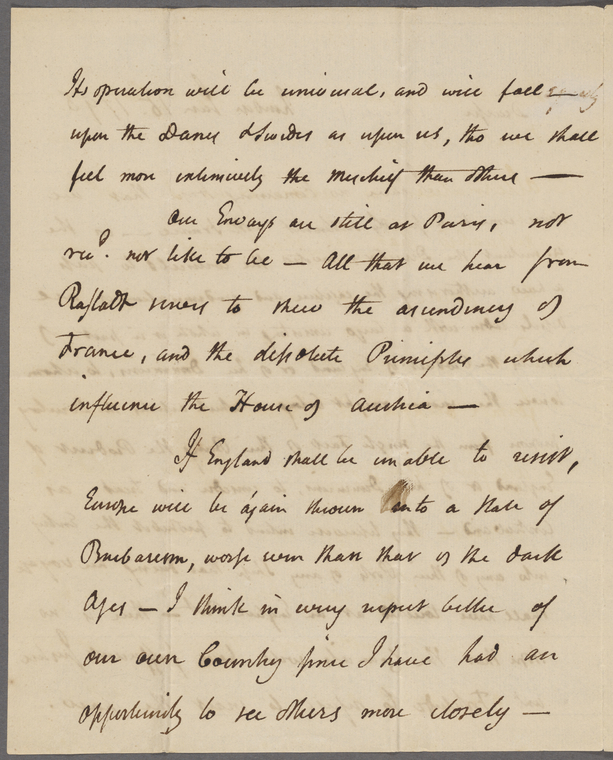 Its operation will be universal, and will fall equally
upon the Danes & Swedes as upon us, tho we shall
feel more extensively the mischief than others —
Our Envoys are still at Paris, not
recd. nor like to be — All that we hear from
Rastadt serves to shew the ascendency of
France, and the dissolute Principles which
influence the House of Austria —
If England shall be unable to resist,
Europe will be again thrown into a state of
Barbarism, worse even than that of the dark
Ages — I think in every respect better of
our own Country since I have had an
opportunity to see others more closely —